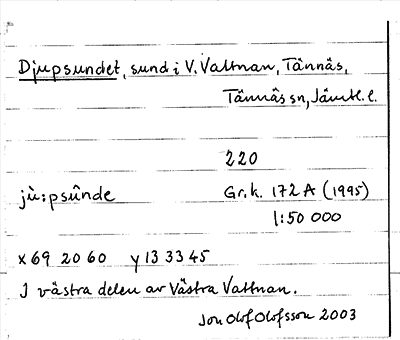 Djupsundet, sund i V. Vattnan, Tännäs,
Tännäs sn, Jämtl. l.
220
jù:psûnde Gr.k. 172 A (1995)
1:50 000
x 69 20 60 y 13 33 45
I västra delen av Västra Vattnan.
Jon Olof Olofsson 2003